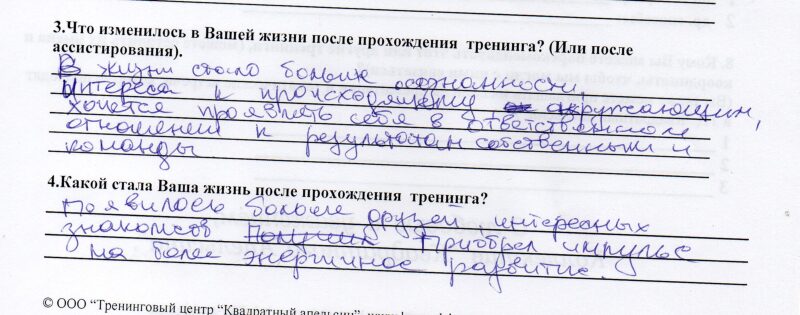 3.Что изменилось в Вашей жизни после прохождения тренинга? (Или после
ассистирования).
В жизни стало больше осознанности,
интереса к происходящему ок окружающим,
хочется проявлять себя в ответственном
отношении к результатам собственным и
команды
4.Какой стала Ваша жизнь после прохождения тренинга?
Появилось больше друзей, интересных
знакомств Получил Приобрел импульс
на более энергичное развитие.
© ООО “Тренинговый центр “Квадратный апельсин”,